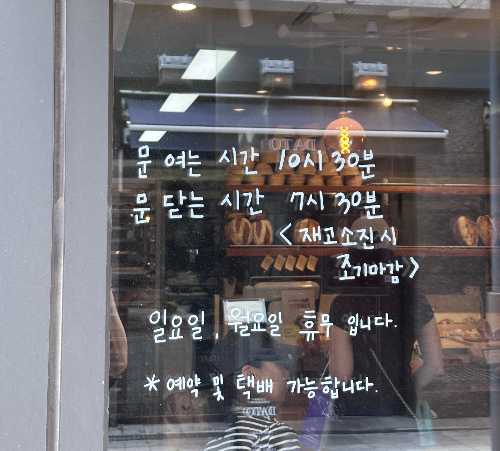 문 여는 시간 10시 30분
문 닫는 시간 7시 30분
<재고소진시
조기마감>
일요일, 월요일 휴무 입니다.
*예약 및 택배 가능합니다.
DATO
DATO